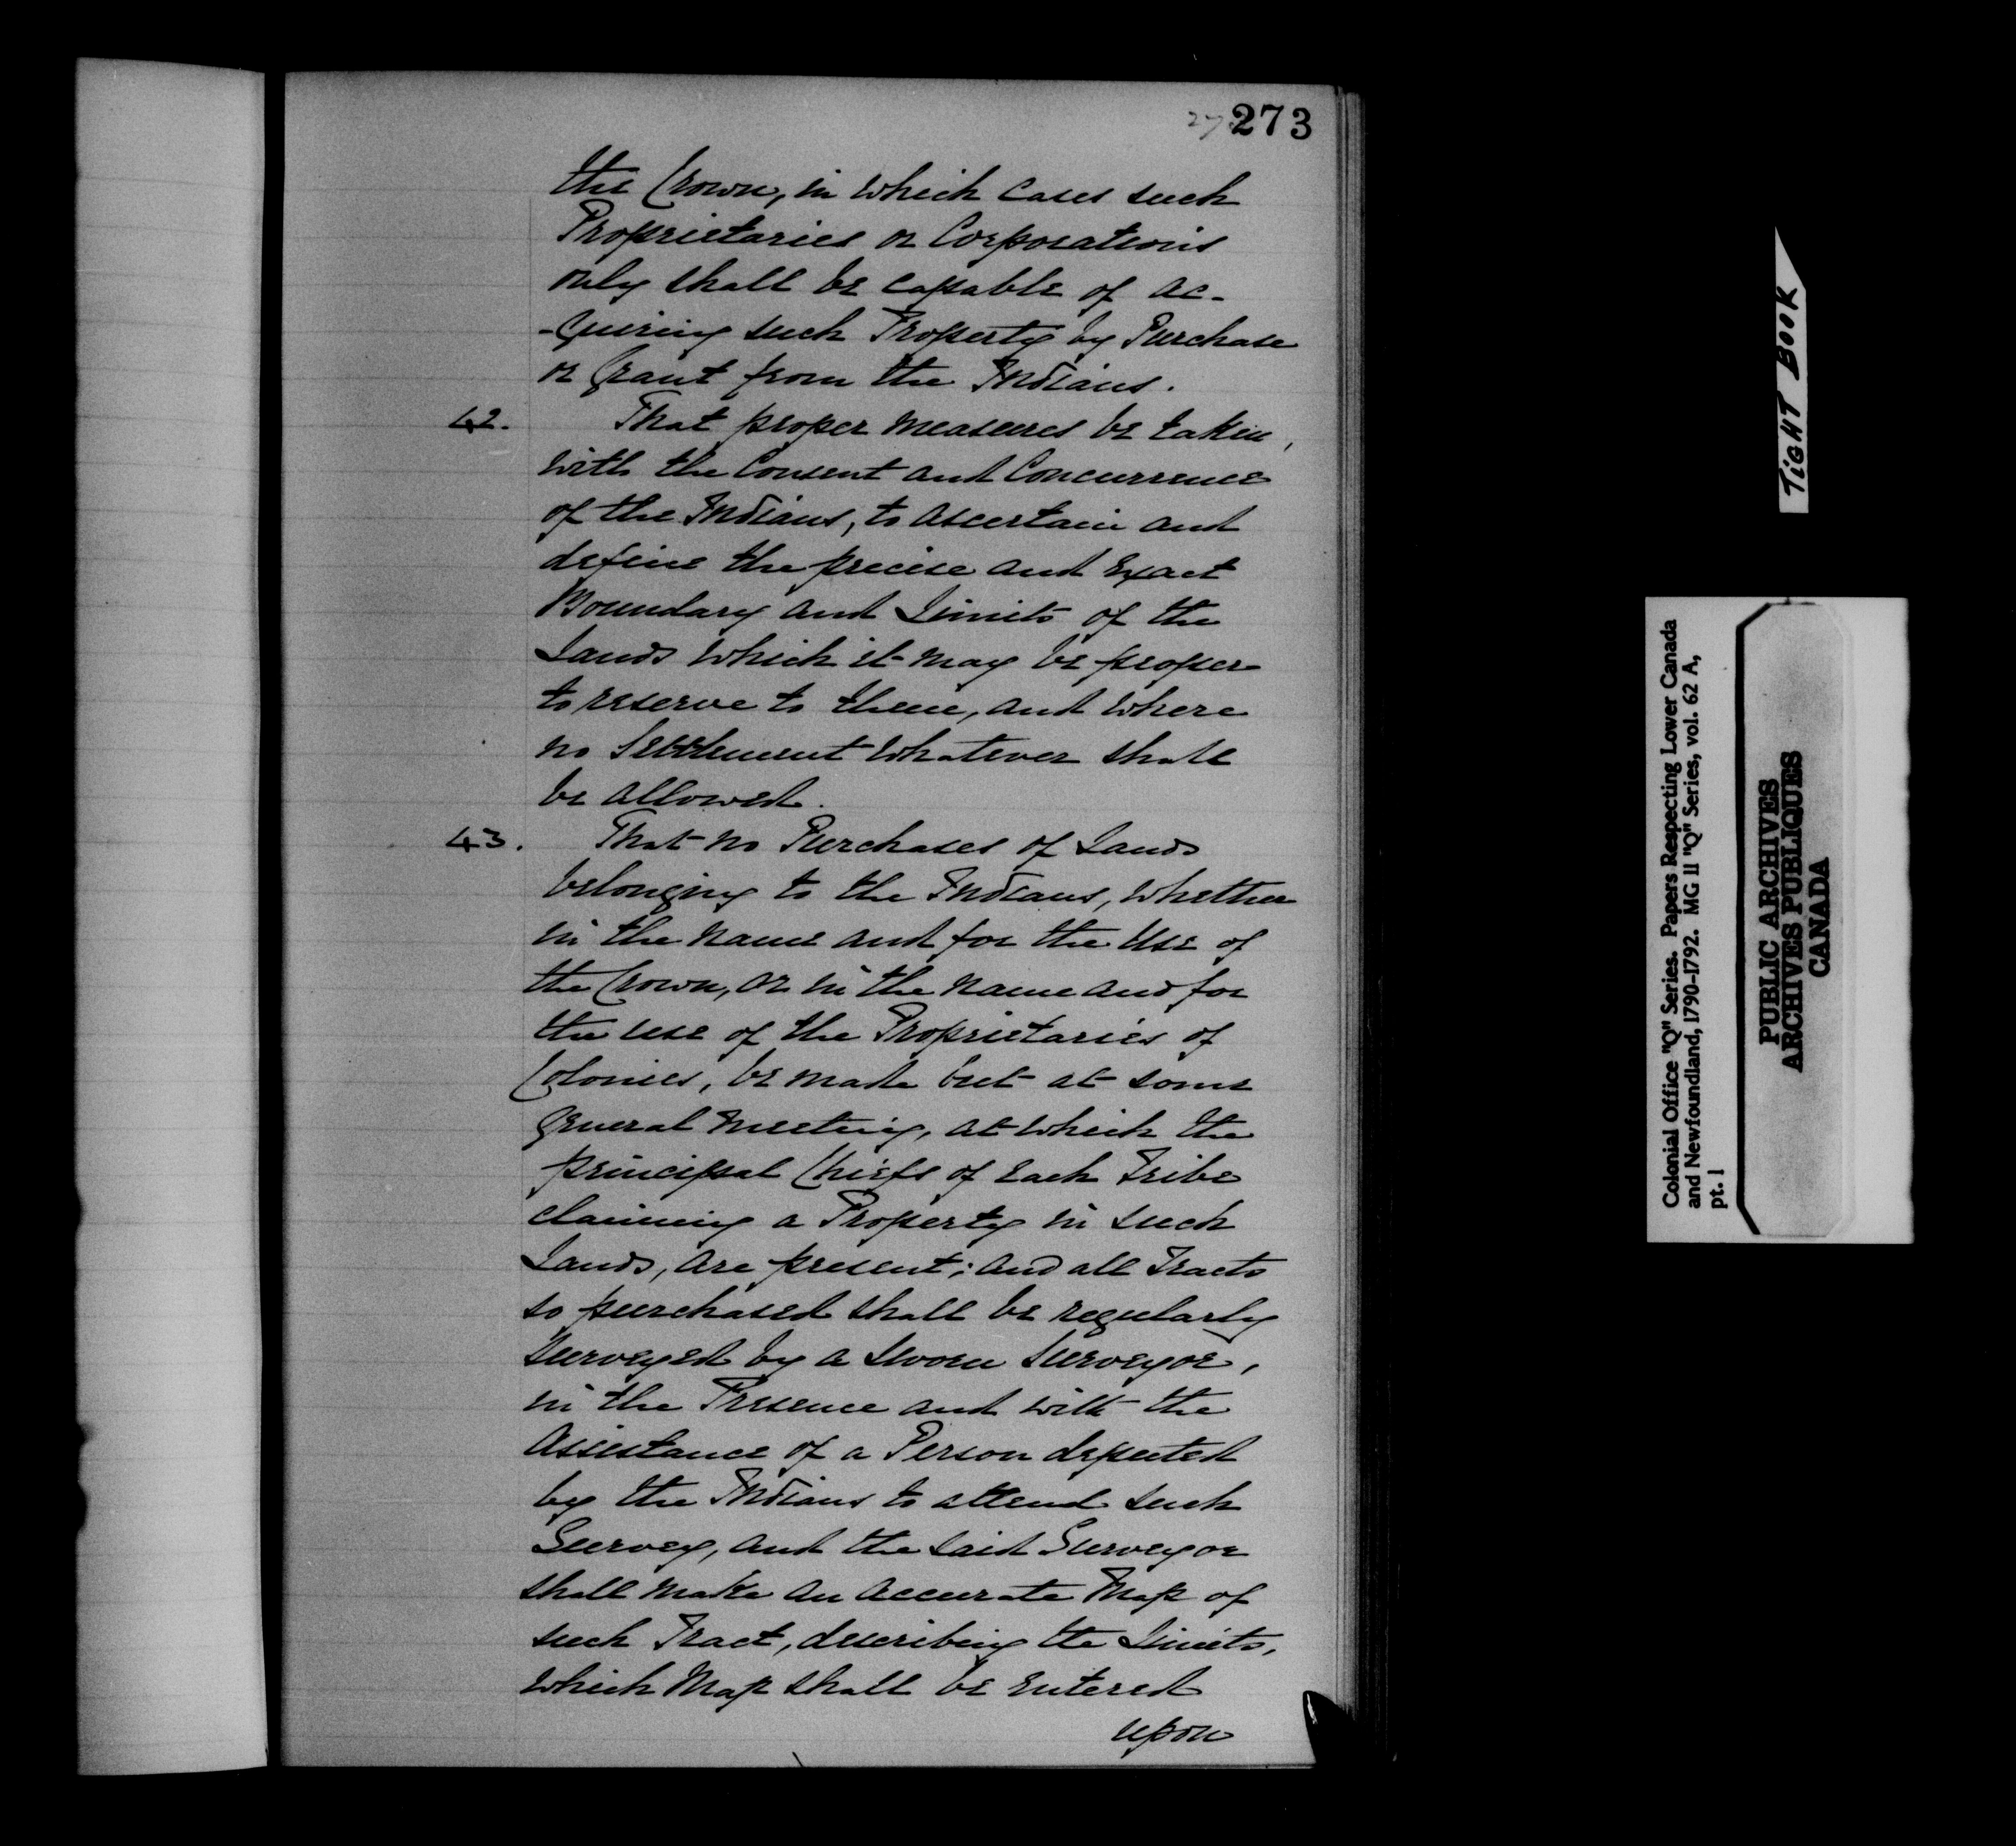 273
the Crown, in which cases such
Proprietaries or Corporations
only shall be capable of ac-
-quiring such Property by Purchase
or Grant from the Indians.
42. That proper measures be taken,
with the Consent and Concurrence
of the Indians, to ascertain and
define the precise and Exact
Boundary and Limits of the
Lands which it may be proper
to reserve to them, and where
no Settlement whatever shall
be allowed.
43. That no Purchases of Lands
belonging to the Indians, whether
in the name and for the Use of
the Crown, or in the name and for
the use of the Proprietaries of
Colonies, be made but at some
General Meeting, at which the
principal Chiefs of each Tribe
claiming a Property in such
Lands, are present; and all Tracts
so purchased shall be regularly
surveyed by a Sworn Surveyor,
in the Presence and with the
Assistance of a Person deputed
by the Indians to attend such
Survey, and the said Surveyor
shall make an accurate Map of
such Tract, describing the Limits,
which Map shall be entered
upon
TiGHT BOOK
Colonial Office "Q" Series. Papers Respecting Lower Canada
and Newfoundland, 1790-1792. MG 11 "Q" Series, vol. 62 A,
pt. 1
PUBLIC ARCHIVES
ARCHIVES PUBLIQUES
CANADA